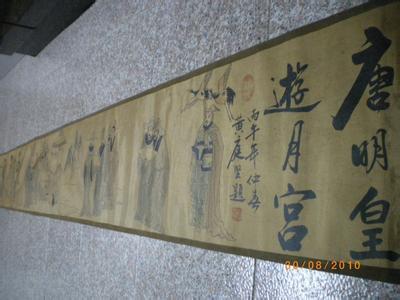 唐明皇
遊月宮
丙午年仲春
黄庭堅題
09/08/2010